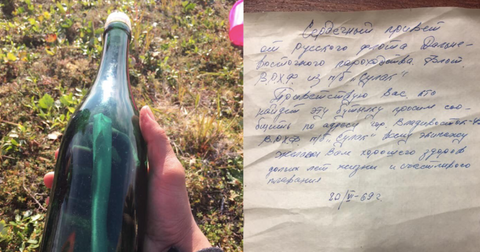 Сердечный привет
от русского флота Дальне-
восточного пароходства.
ВРХФ из п/б "Сулак"
Приветствую Вас, кто
найдет эту бутылку просим сооб-
щить по адресу гор. Владивосток-43
ВРХФ п/б "Сулак" всему экипажу
желаем Вам хорошего здоров
долгих лет жизни и счастливого
плавания